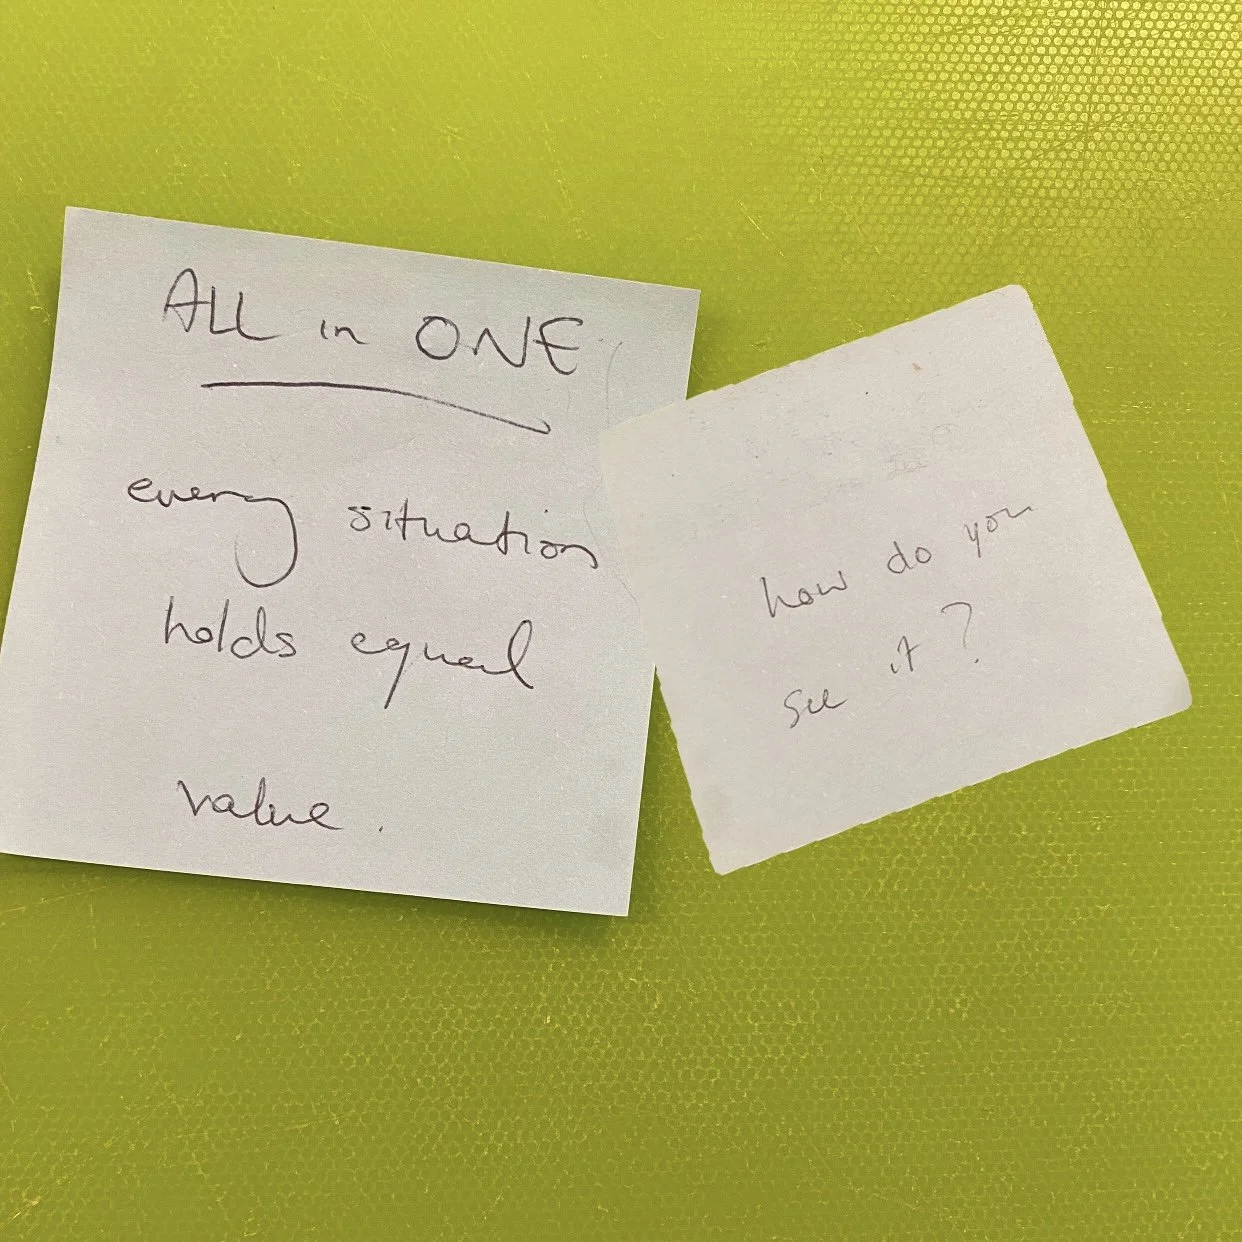 ALL in ONE
every situation
holds equal
value.
how do you
see it?